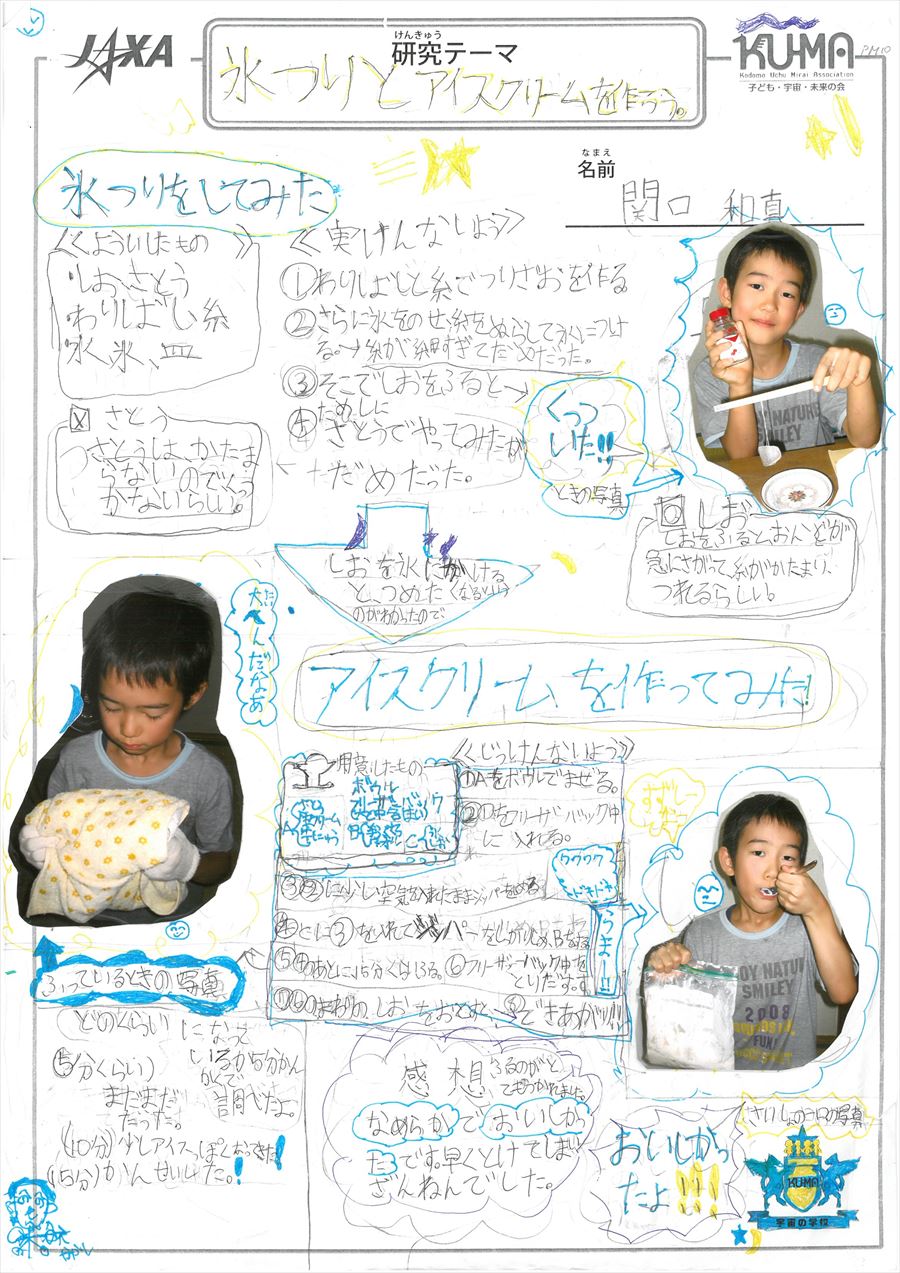 JAXA
けんきゅう
研究テーマ
氷つりとアイスクリームを作ろう。
KU-MA
Kodomo Uchu Mirai Association
子ども・宇宙・未来の会
なまえ
名前
関口 和真
氷つりをしてみた
《よういしたもの》
しお、さとう
わりばし、糸
水、氷、皿
《実けんないよう》
①わりばしと糸でつりざおを作る
②さらに氷をのせ、糸をぬらして氷につけ
る。→糸が細すぎてだめだった。
③そこでしおをふると→
④ためしに
さとうでやってみたが
だめだった。
くっつ
いた!!
ときの写真
さとう
さとうは、かたま
らないのでくっ
かないらしい。
しお
しおをふるとおんどが
急にさがって糸がかたまり、
つれるらしい。
しおを氷にかける
と、つめたくなるという
のがわかったので、
大へんだなあ
アイスクリームを作ってみた!
用意したもの
ボウル
《じっけんないよう》
①Aをボウルでまぜる。
②①をフリーザーバック中
に入れる。
③②に少し空気を入れたままジッパーをしめる
ワクワク
ドキドキ
うまー!!
ふっているときの写真
どのくらいになって
いるか5分かん
かくで
調べたよ。
(5分くらい)
まだまだ
だった。
(10分)少しアイスっぽくなってきた!
(15分)かんせいした。!
感想
ふるのがと
てもつかれました。
なめらかでおいしかっ
たです。早くとけてしまい
ざんねんでした。
おいしかっ
たよ!!!
さいしょの一口の写真
KU-MA
宇宙の学校
NATURE
SMILEY
SMILEY
2008